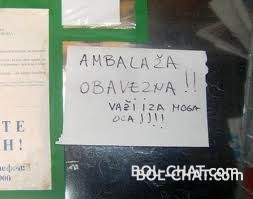 AMBALAŽA
OBAVEZNA!!
VAŽI I ZA MOGA
OCA!!!!
ТЕ
Н!
BOL-CHAT.com
BOL-CHAT.com